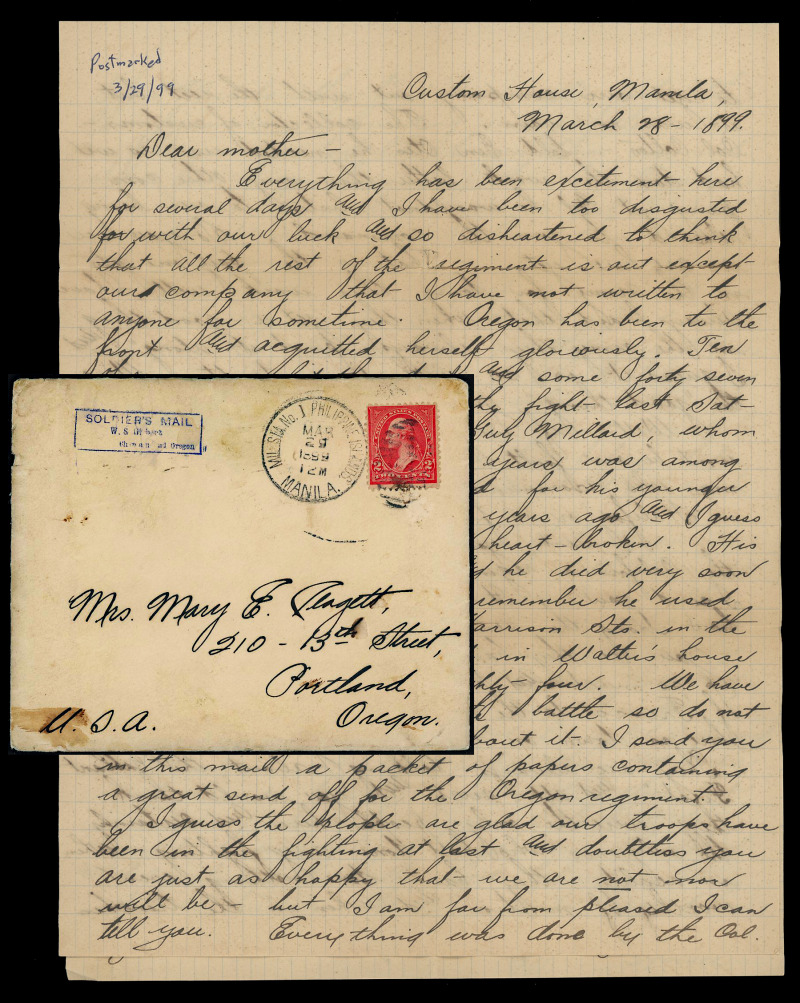 Postmarked
3/29/99
Custom House, Manila,
March 28 - 1899.
Dear mother -
Everything has been excitement here
for several days and I have been too disgusted
for with our luck and so disheartened to think
that all the rest of the regiment is out except
our company that I have not written to
anyone for sometime. Oregon has been to the
front and acquitted herself gloriously. Ten
and some forty seven
fight last Sat-
Guy Millard, whom
years was among
for his younger
years ago and I guess
heart-broken. His
he died very soon
remember he used
Harrison Sts. in the
in Walter's house
four. We have
battle so do not
about it. I send you
in this mail a packet of papers containing
a great send off for the Oregon regiment.
I guess the people are glad our troops have
been in the fighting at last and doubtless you
are just as happy that we are not nor
will be - but I am far from pleased I can
tell you. Everything was done by the Col.
SOLDIER'S MAIL
W. S.
Oregon
MIL. STA. No. 1 PHILIPPINE ISLANDS.
MAR
29
1899
12 M
MANILA.
UNITED STATES
2 2
CENTS
Mrs. Mary E.
210 - 13th Street,
Portland,
Oregon.
U. S. A.